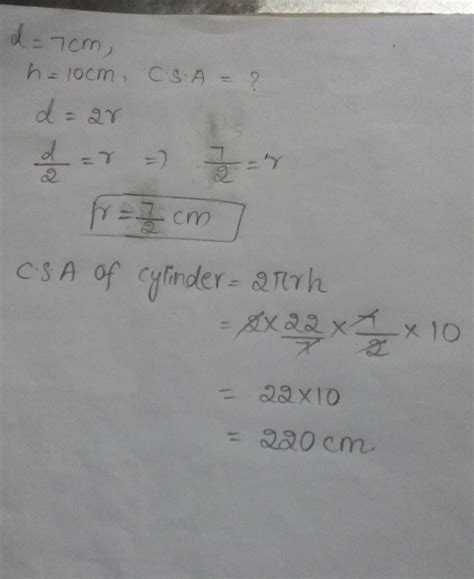 d = 7cm,
h = 10cm, C.S.A = ?
d = 2r
d/2 = r => 7/2 = r
r = 7/2 cm
C.S.A of cylinder = 2πrh
= 2 × 22/7 × 7/2 × 10
= 22×10
= 220 cm